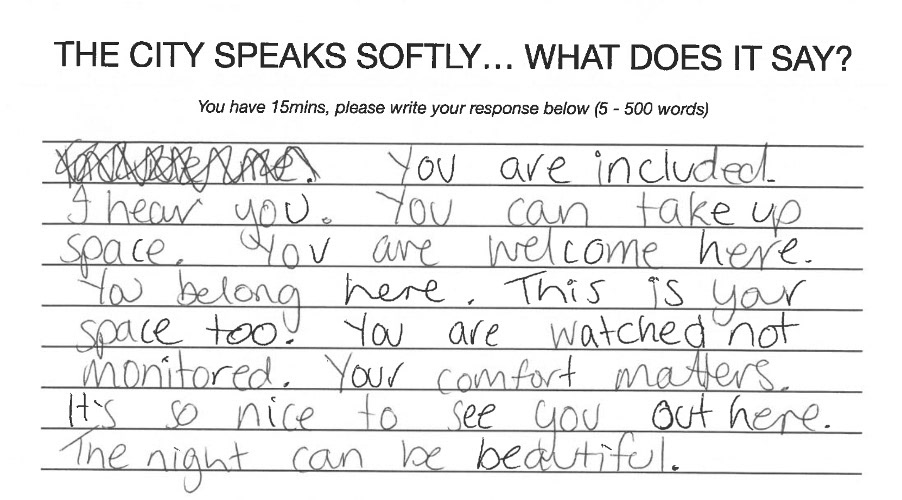 THE CITY SPEAKS SOFTLY... WHAT DOES IT SAY?
You have 15mins, please write your response below (5 - 500 words)
You are included.
I hear you. You can take up
space. You are welcome here.
You belong here. This is your
space too. You are watched not
monitored. Your comfort matters.
It's so nice to see you out here.
The night can be beautiful.